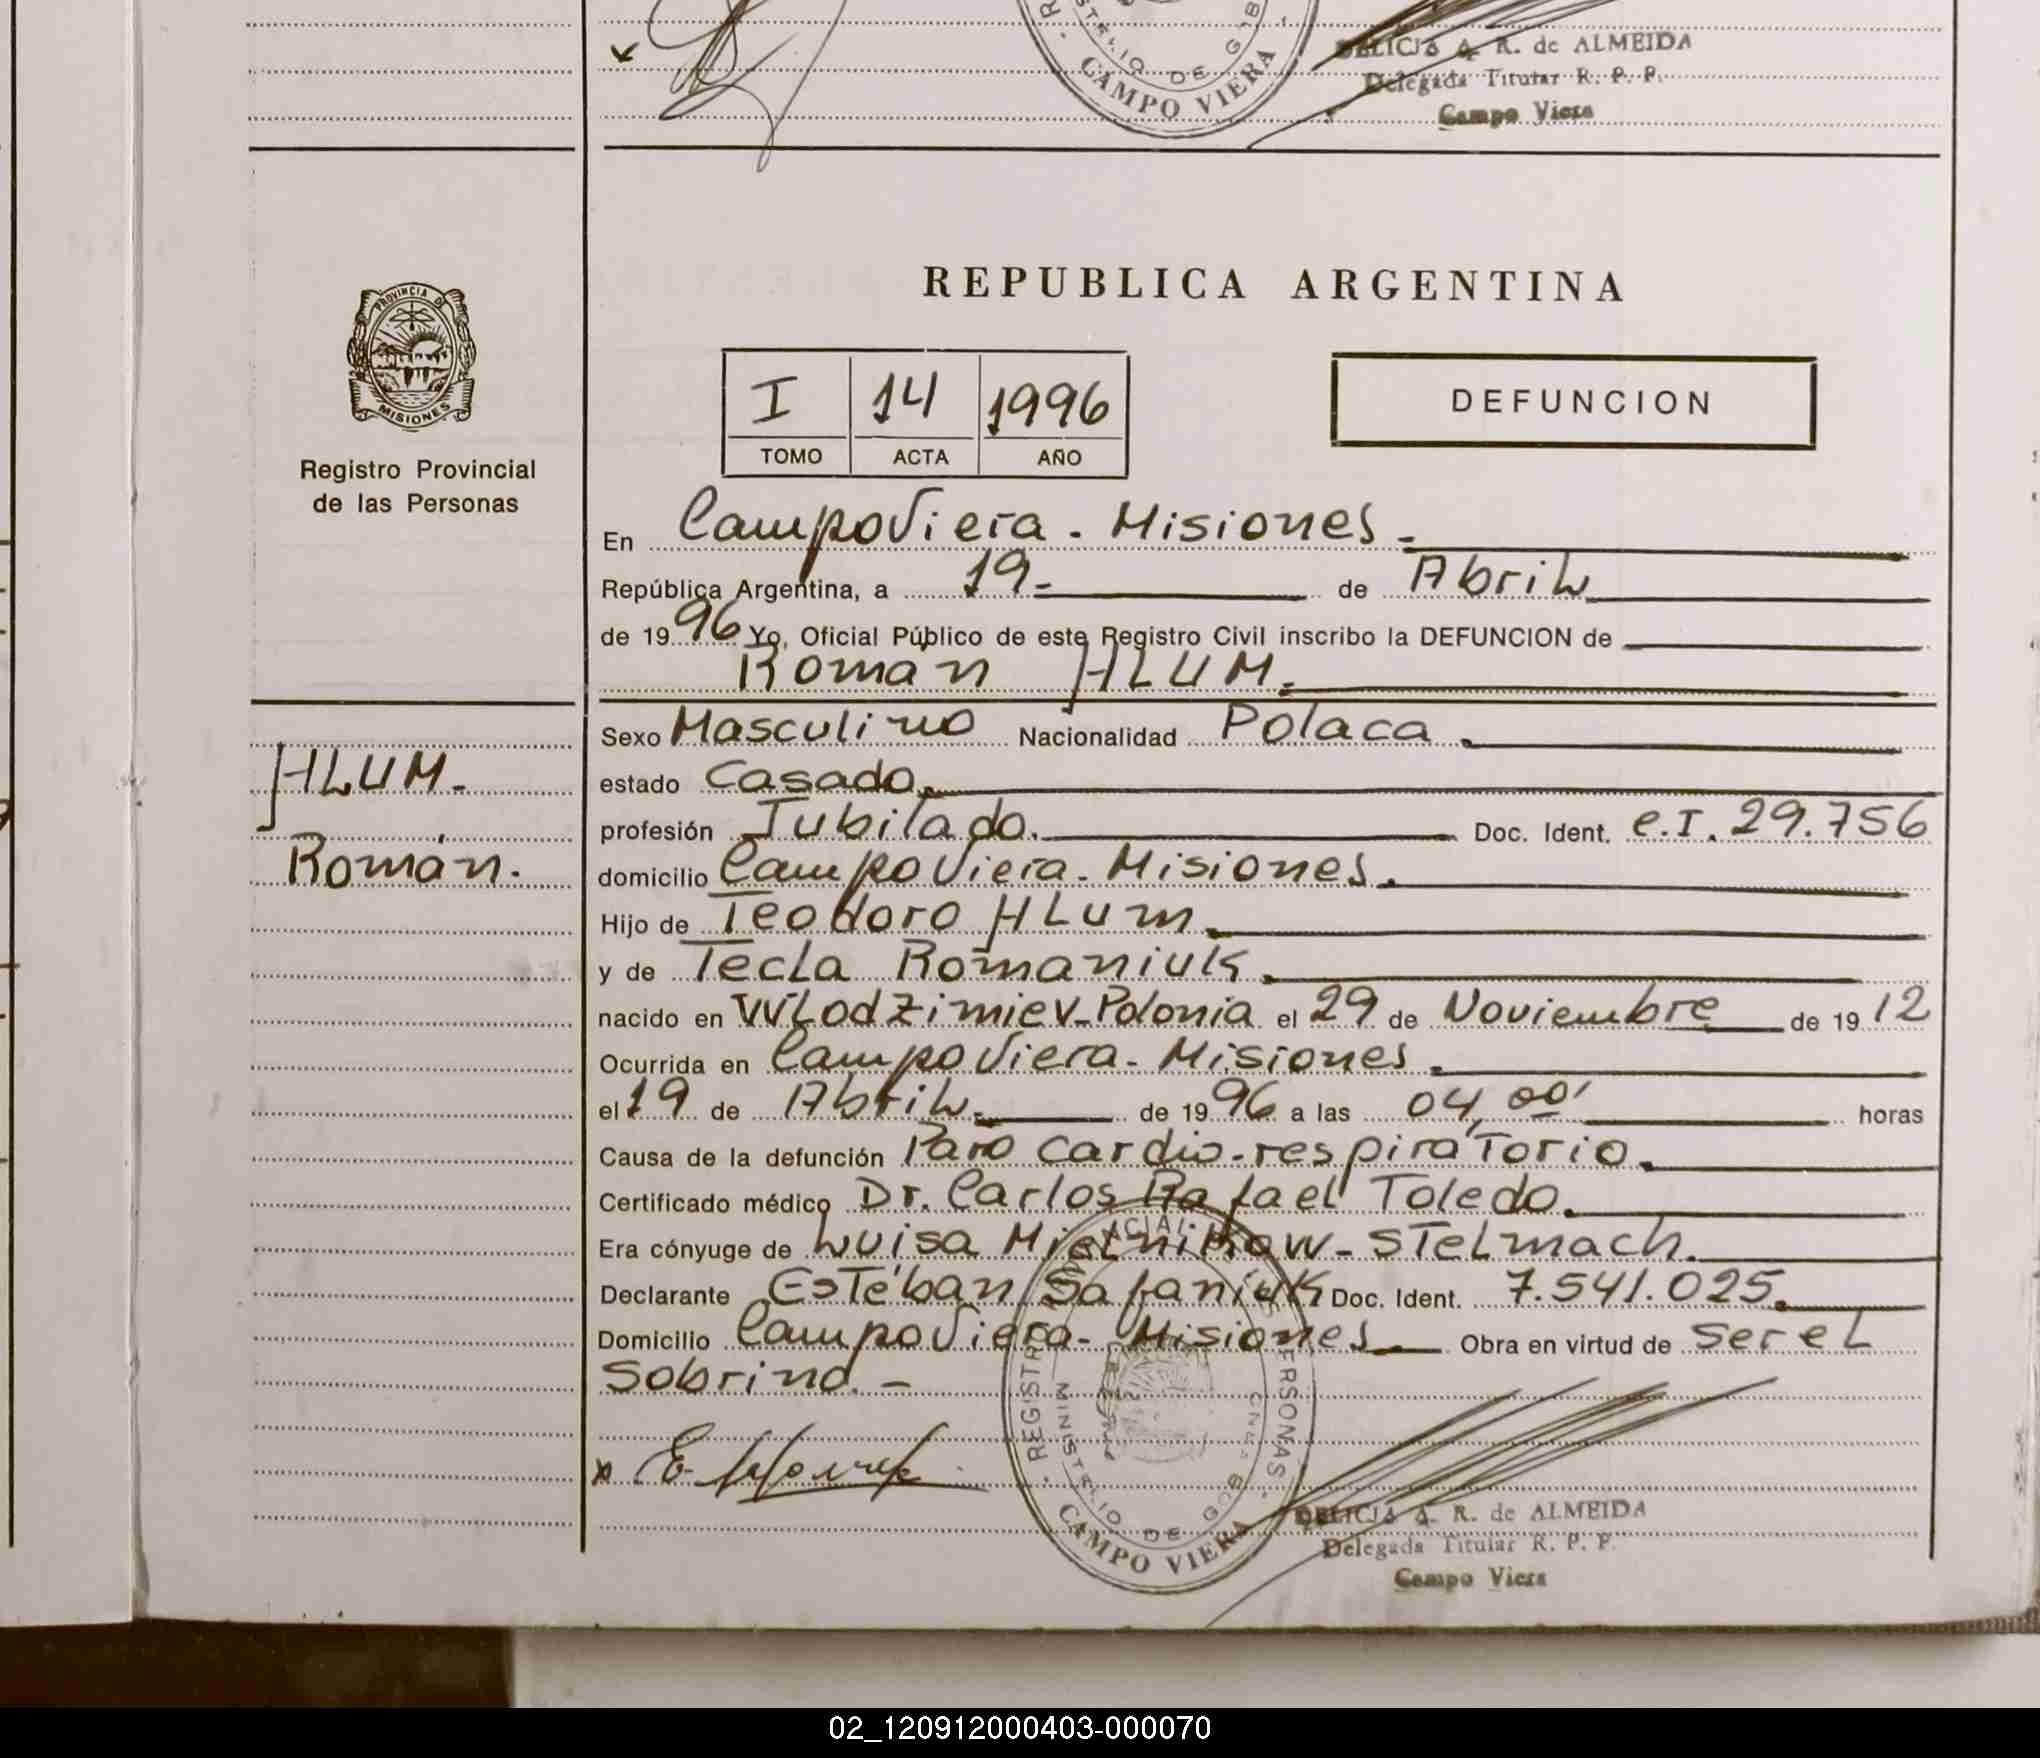 DELICIA A. R. de ALMEIDA
Delegada Titular R. P. P.
Campo Viera
CAMPO VIERA
PROVINCIA DE
MISIONES
Registro Provincial
de las Personas
REPUBLICA ARGENTINA
I 14 1996
TOMO ACTA AÑO
DEFUNCION
En CampoViera - Misiones -
República Argentina, a 19- de Abril
de 1996 Yo, Oficial Público de este Registro Civil inscribo la DEFUNCION de
Román HLUM.
HLUM.
Román.
Sexo Masculino Nacionalidad Polaca.
estado Casado.
profesión Jubilado. Doc. Ident. e.I. 29.756
domicilio CampoViera - Misiones.
Hijo de Teodoro HLum.
y de Tecla Romaniuk.
nacido en WLodzimiev-Polonia el 29 de Noviembre de 1912
Ocurrida en CampoViera - Misiones.
el 19 de Abril. de 1996 a las 04,00' horas
Causa de la defunción Paro cardio-respiratorio.
Certificado médico Dr. Carlos Rafael Toledo.
Era cónyuge de Luisa Mielnikow - STeLmach.
Declarante Estéban Safaniuk Doc. Ident. 7.541.025.
Domicilio CampoViera - Misiones Obra en virtud de ser el
Sobrino. -
REGISTRO PROVINCIAL DE LAS PERSONAS
MINISTERIO DE GOB
CAMPO VIERA
DELICIA A. R. de ALMEIDA
Delegada Titular R. P. P.
Campo Viera
02_120912000403-000070